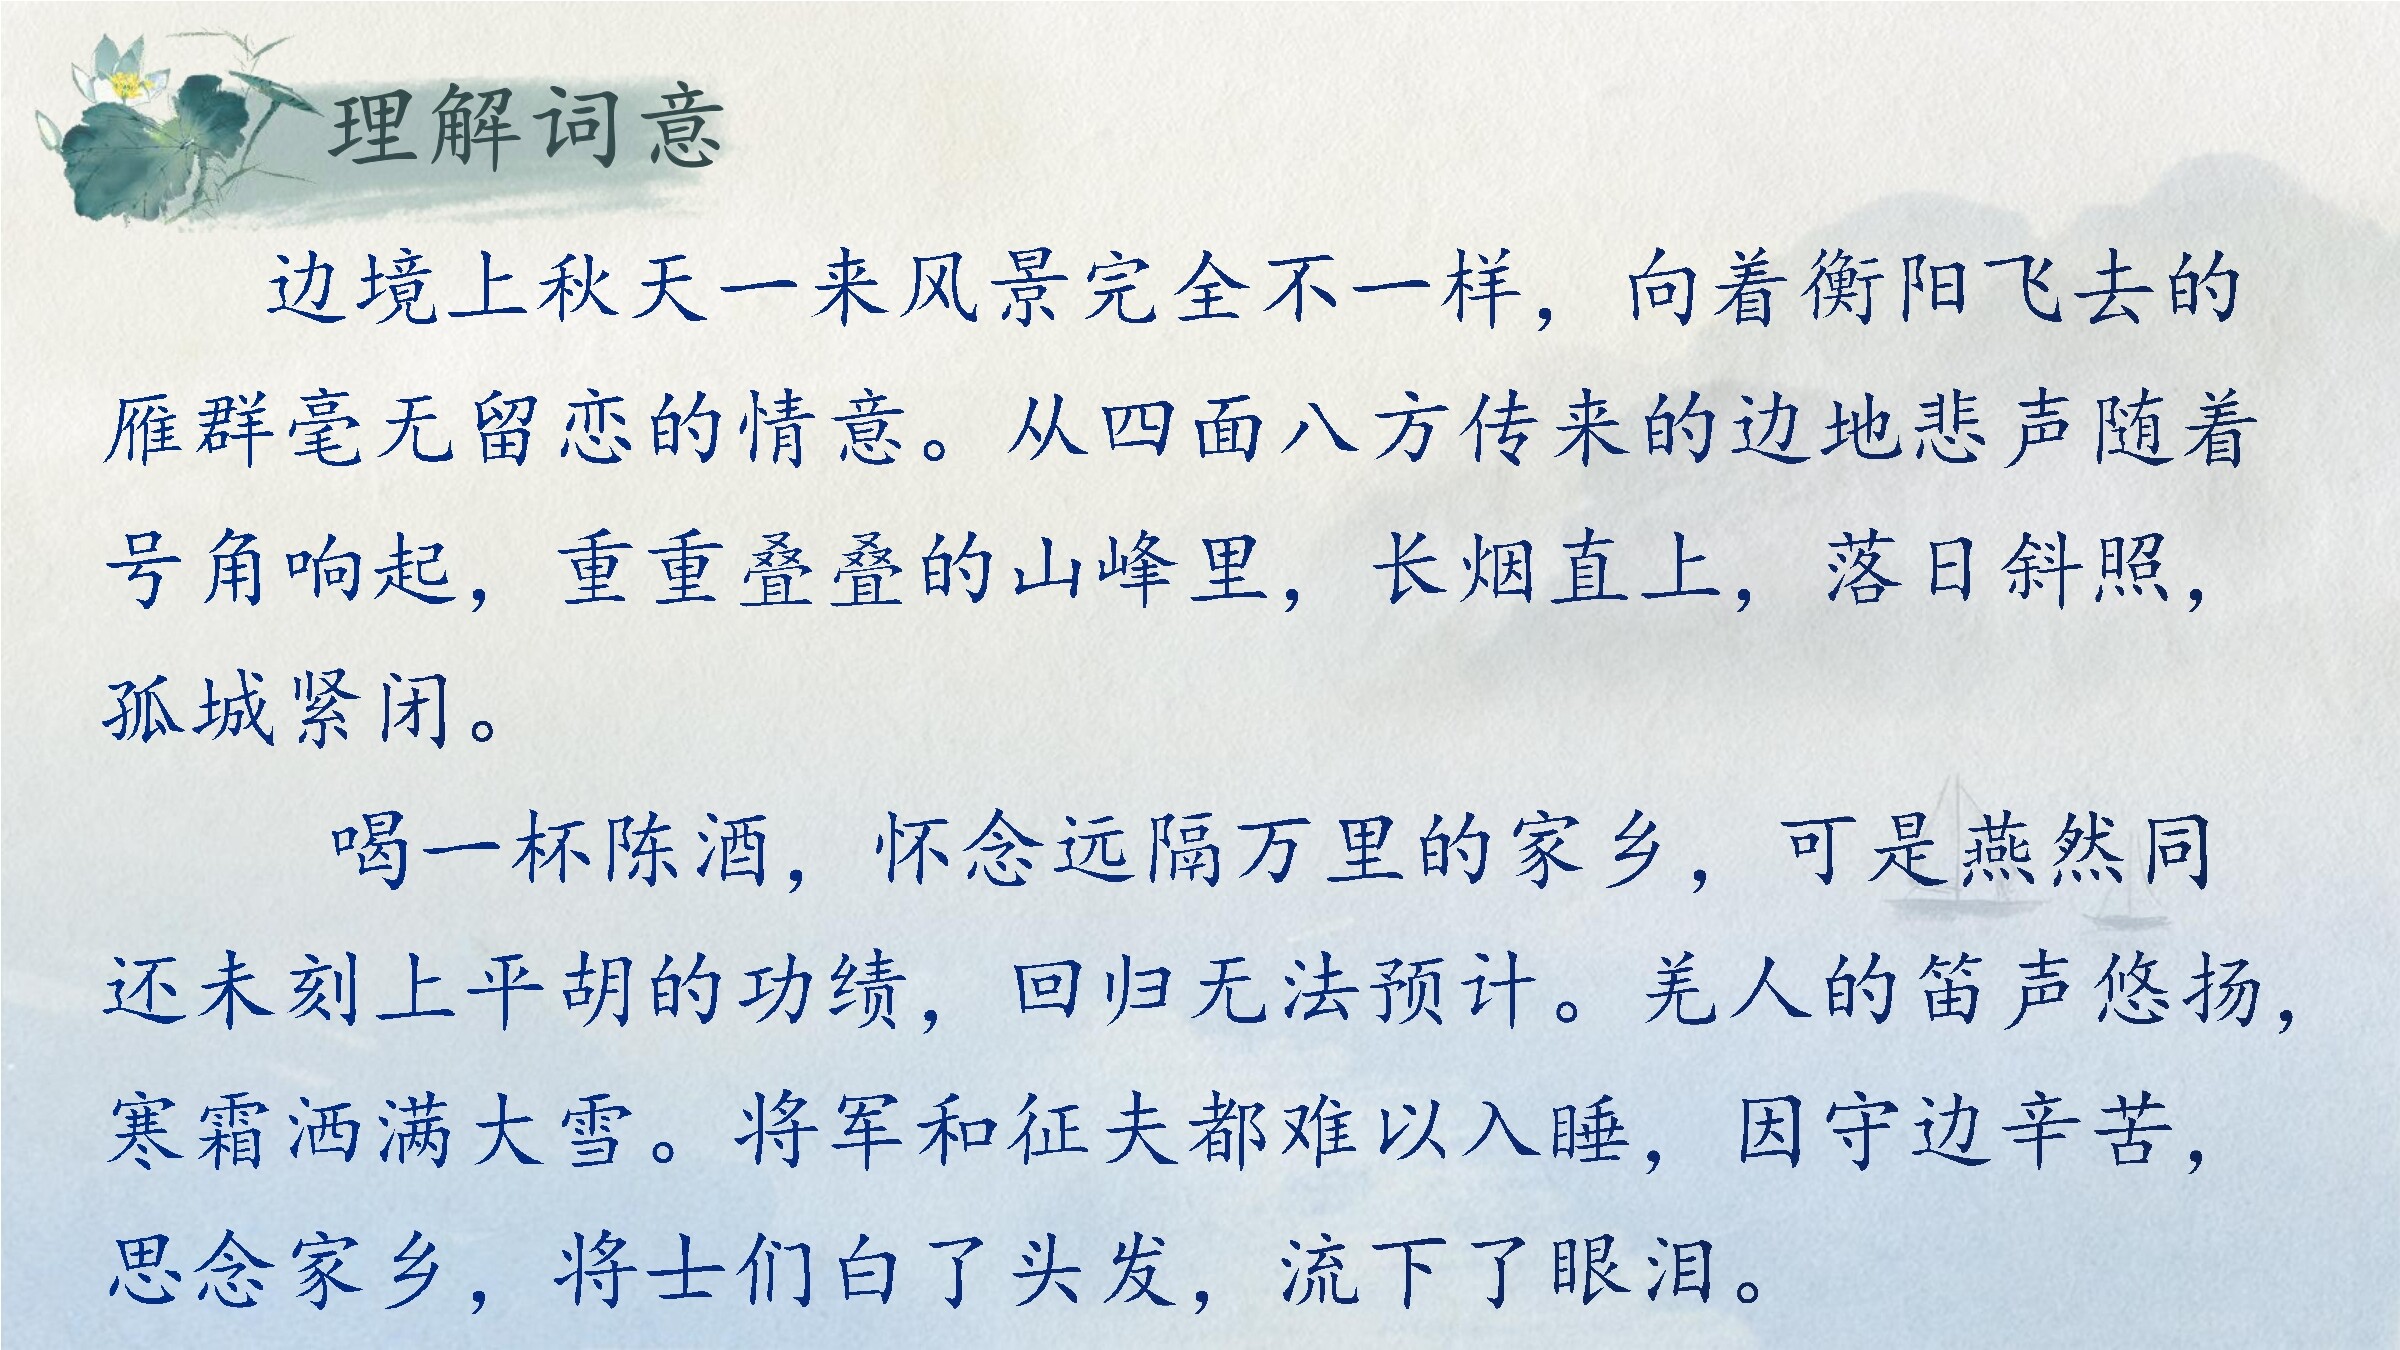 理解词意
边境上秋天一来风景完全不一样，向着衡阳飞去的
雁群毫无留恋的情意。从四面八方传来的边地悲声随着
号角响起，重重叠叠的山峰里，长烟直上，落日斜照，
孤城紧闭。
喝一杯陈酒，怀念远隔万里的家乡，可是燕然同
还未刻上平胡的功绩，回归无法预计。羌人的笛声悠扬，
寒霜洒满大雪。将军和征夫都难以入睡，因守边辛苦，
思念家乡，将士们白了头发，流下了眼泪。